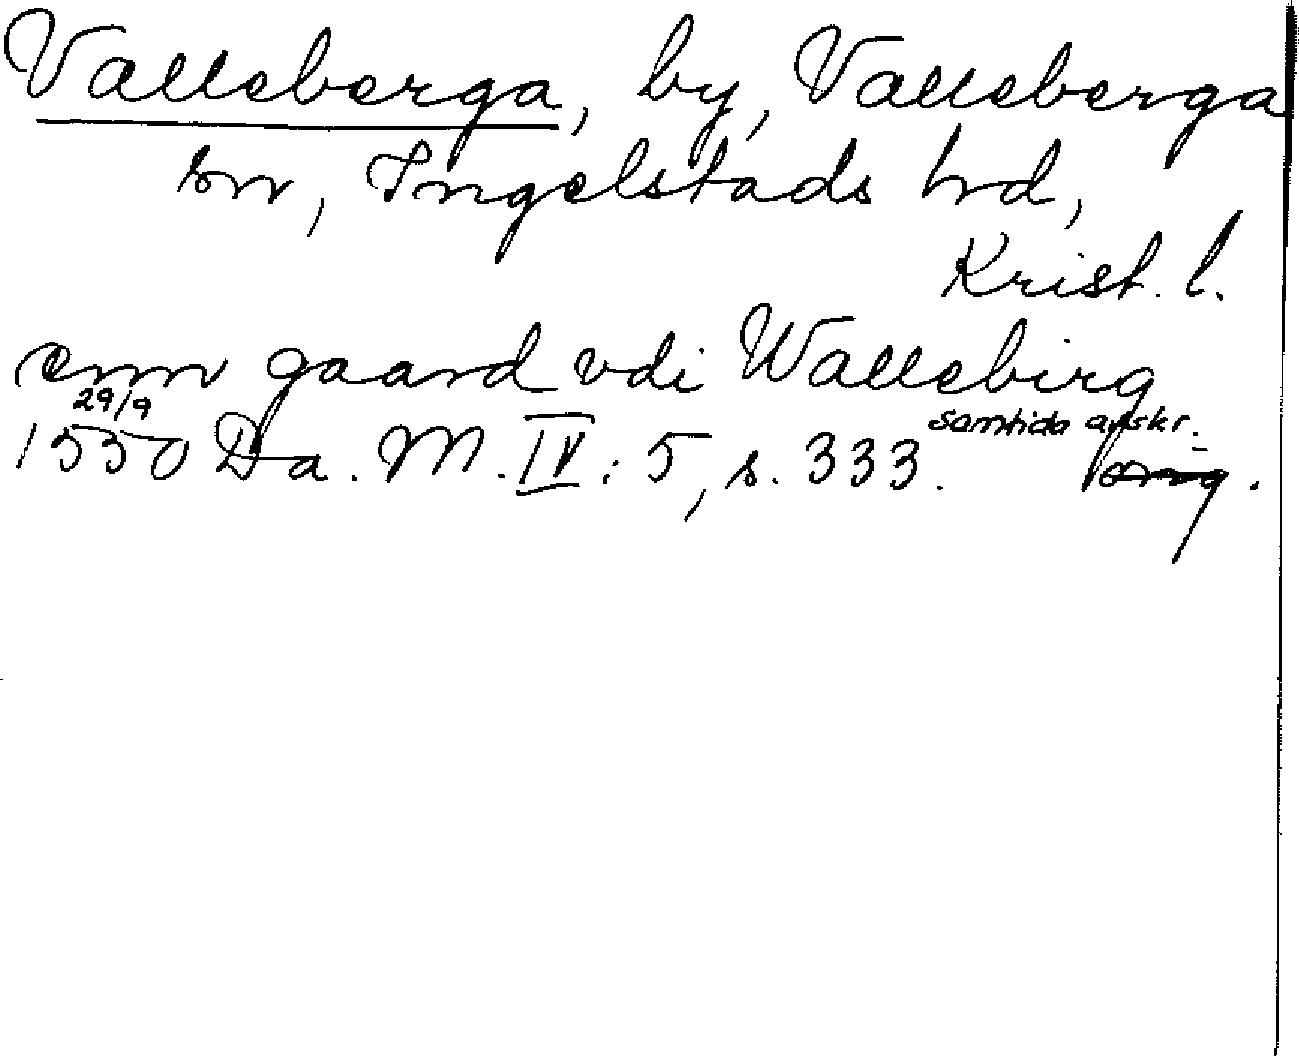 Valleberga, by, Valleberga
sn, Ingelstads hd,
Krist. l.
enn gaard vdi Wallebirg
29/9
samtida avskr.
1550 Da. M. IV: 5, s. 333. orig.